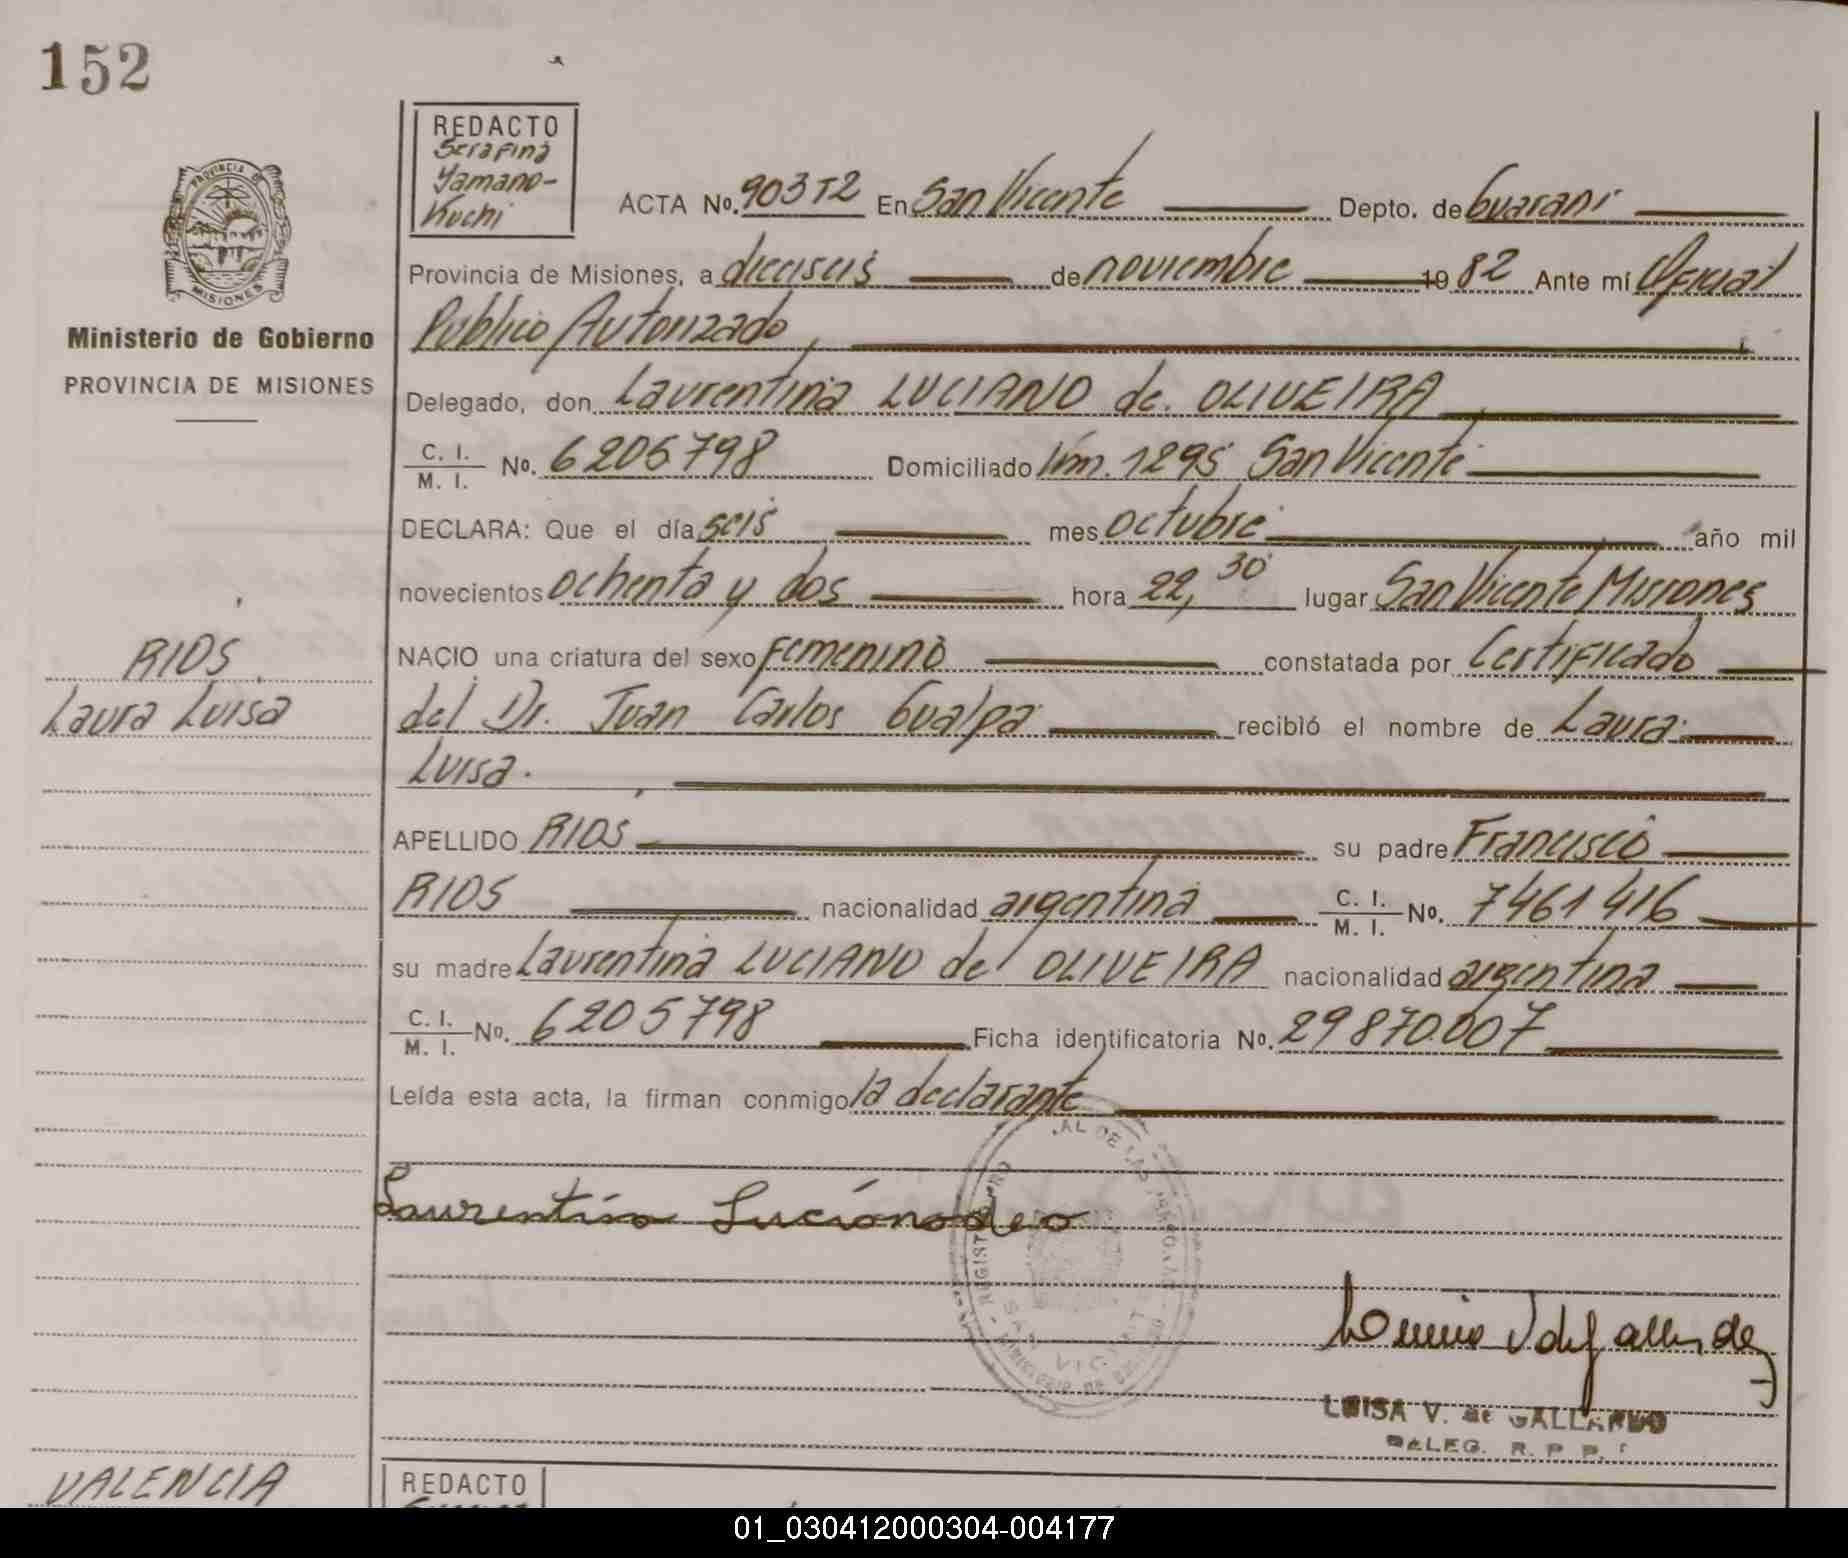 152
REDACTO
Serafina
Yamano-
Kuchi
ACTA No. 903T2 En San Vicente Depto. de Guarani
Provincia de Misiones, a dieciseis de noviembre 1982 Ante mí Oficial
Público Autorizado,
Delegado, don Laurentina LUCIANO de OLIVEIRA
C. I.
M. I. No. 6205798 Domiciliado km. 1295 San Vicente
DECLARA: Que el día seis mes octubre año mil
novecientos ochenta y dos hora 22,30 lugar San Vicente Misiones
NACIO una criatura del sexo femenino constatada por Certificado
del Dr. Juan Carlos Gualpa recibió el nombre de Laura
Luisa.
APELLIDO RIOS su padre Francisco
RIOS nacionalidad argentina C. I.
M. I. No. 7461416
su madre Laurentina LUCIANO de OLIVEIRA nacionalidad argentina
C. I.
M. I. No. 6205798 Ficha identificatoria No. 29870.007
Leída esta acta, la firman conmigo la declarante
Laurentina Luciano de o
LUISA V. de GALLARDO
DELEG. R. P. P.
PROVINCIA D
MISIONES
Ministerio de Gobierno
PROVINCIA DE MISIONES
RIOS
Laura Luisa
VALENCIA
REDACTO
01_030412000304-004177